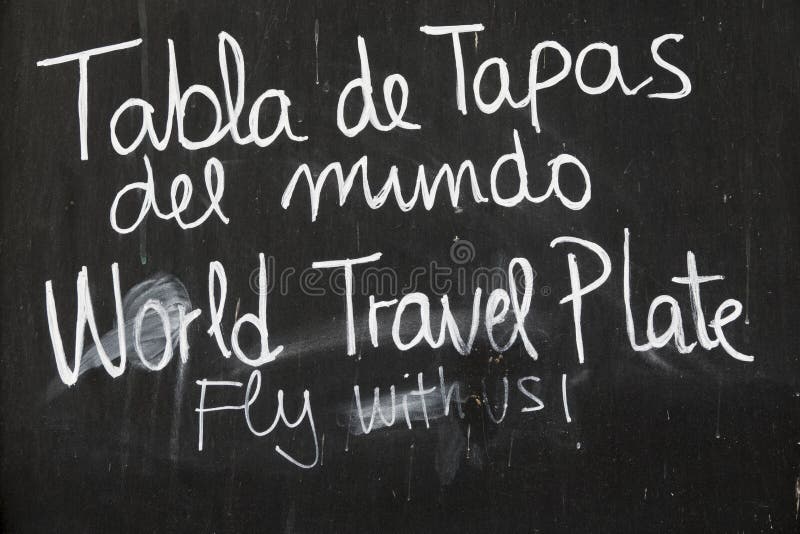 Tabla de Tapas
del mundo
World Travel Plate
Fly with us!
dreamstime